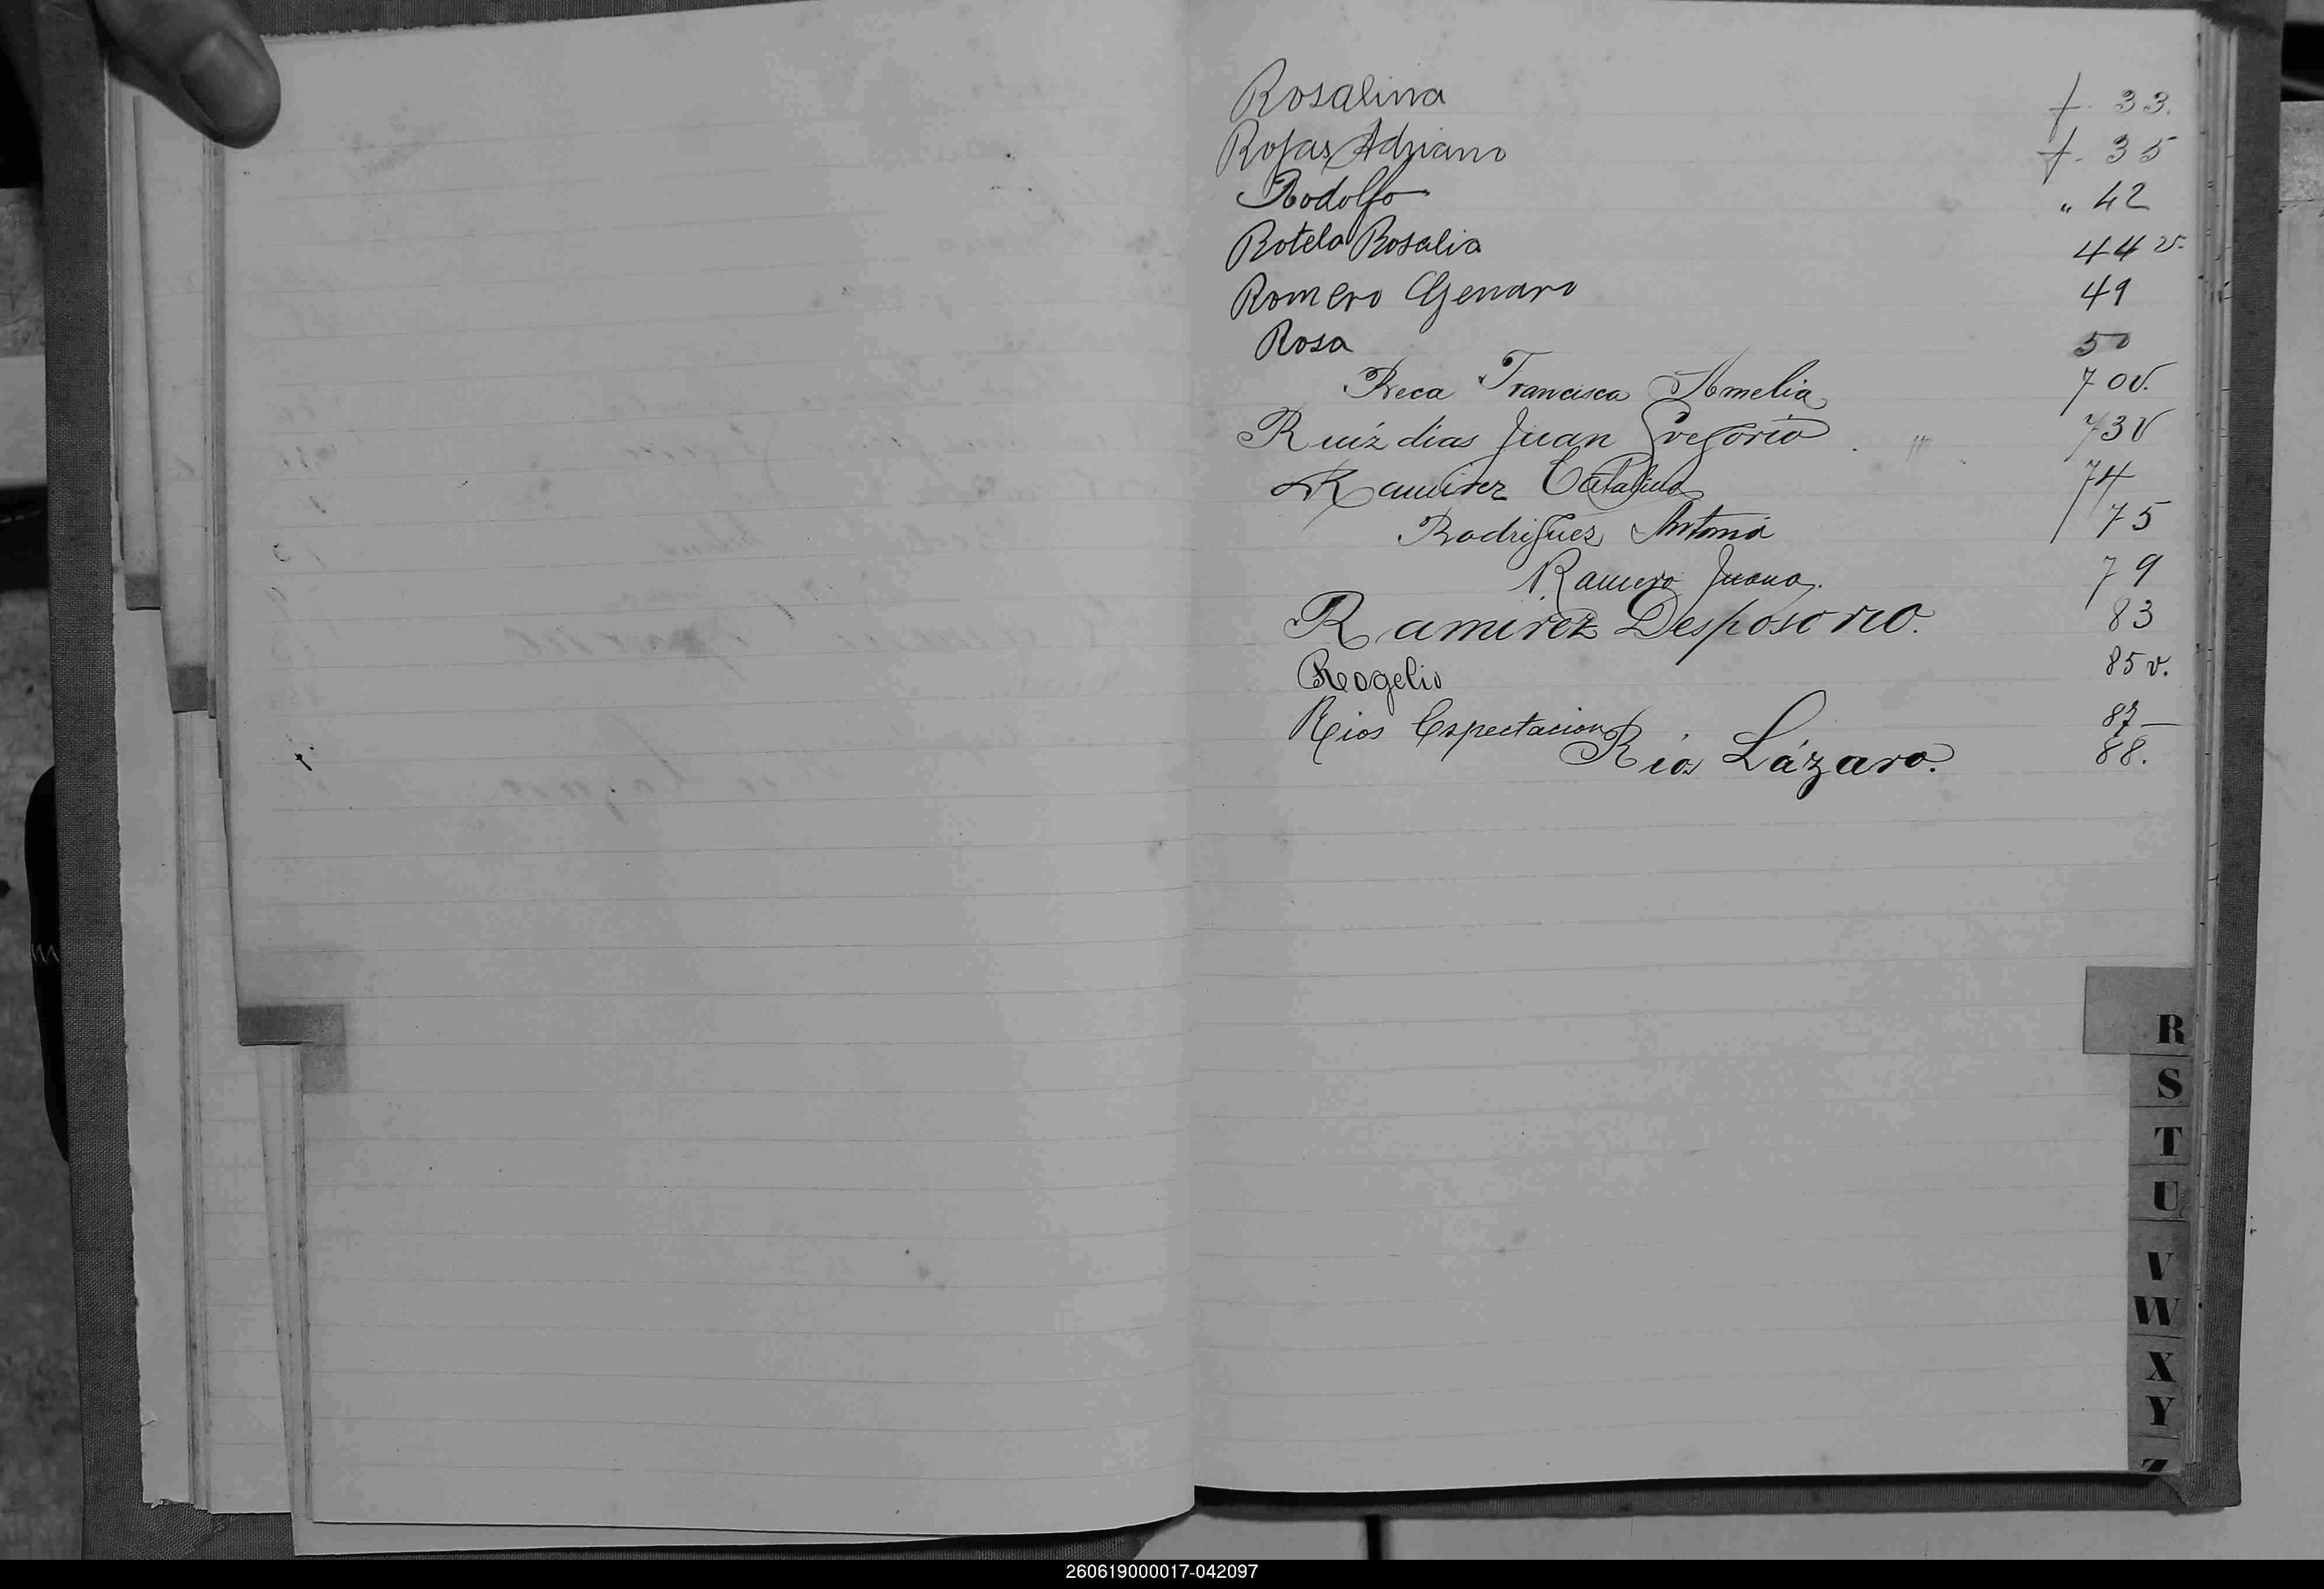 Rosalina f. 33.
Rojas Adriano f. 35
Rodolfo " 42
Rotela Rosalia 44 v.
Romero Genaro 49
Rosa 50
Reca Francisca Amelia 70v.
Ruiz dias Juan Gregorio 73v
Ramirez Catalina 74
Rodriguez Antonia 75
Ramero Juana. 79
Ramirez Desposorio. 83
Rogelio 85 v.
Rios Espectacion 87
Rios Lázaro. 88.
R
S
T
U
V
W
X
Y
Z
260619000017-042097